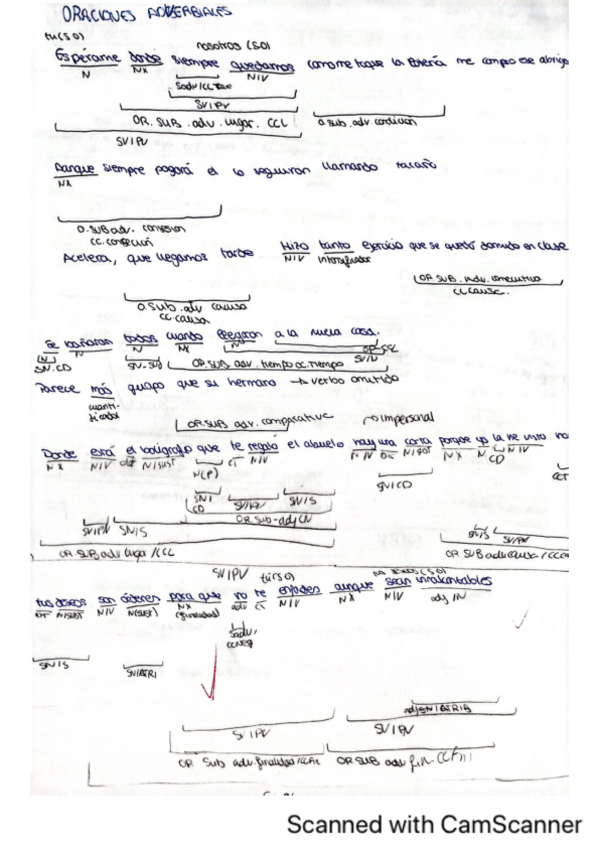 ORACIONES ADVERBIALES
tu(SO) nosotros (SO)
Espérame donde siempre quedamos como me toque la lotería me compro ese abrigo
N NX NIV
Sadv/CC
SV/PV
OR. SUB. adv. lugar. CCL O sub. adv condición
SV/PV
Aunque siempre pagará él lo siguieron llamando tacaño
NX
O. SUB adv. concesión
cc. concesión
Acelera, que llegamos tarde Hizo tanto ejercicio que se quedó dormido en clase
N/V intensificador
OR SUB. adv. consecutiva
CC causa.
O. Sub. adv causa
cc. causa
Se bañaron todos cuando llegaron a la nueva casa.
N N NX N
SN.CD SN-Suj OR. SUB adv. tiempo cc. tiempo SV/N
Parece más guapo que su hermano → verbo omitido
cuanti-
ficador
OR. SUB adv. comparative → impersonal
Donde está el bolígrafo que te regaló el abuelo hay una carta porque yo la he visto
NX N/V det N/sust CT N/V N/V Det N/sust NX N CD N/V
N(P) SV/CD
SN/ CD SV/PV SN/S
SV/PV SN/S OR Sub-adj CN
OR SUB adv lugar /CCL SN/S SV/PV OR SUB adv causa
SV/PV tú(SO)
tus deseos son órdenes para que no te enfades aunque sean inaguantables
DT N/sust N/V N(sust) NX (finalidad) adv CT N/V NX N/V adj /N
Sadv/
CCNeg
SN/S SN/ATRI
adjSN/ATRIB
SV/PV SV/PV
OR Sub adv. finalidad/CCFin OR SUB adv fin.
Scanned with CamScanner